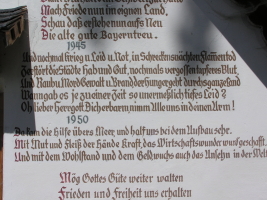 Nach Friede nun im eignen Land,
Schau daß erstehe nun aufs Neu
Die alte gute Bayerntreu.
1945
Und nochmal Krieg u. Leid u. Not, in Schrecknsnächten Flamentod
Zerstört die Städte Hab und Gut, nochmals vergossen tapferes Blut,
Und Raub u. Mord Gewalt u. Brand der Hunger geht durchs ganze Land
Wann gab es je zu einer Zeit so unermeßlich tiefes Leid?
Oh lieber Herrgott Dich erbarm, nimm Alle uns in deinen Arm!
1950
Da kam die Hilfe übers Meer und half uns bei dem Aufbau sehr.
Mit Mut und Fleiß der Hände Kraft, das Wirtschaftswunder wurd geschafft.
Und mit dem Wohlstand und dem Geld, wuchs auch das Ansehn in der Welt
Mög Gottes Güte weiter walten
Frieden und Freiheit uns erhalten